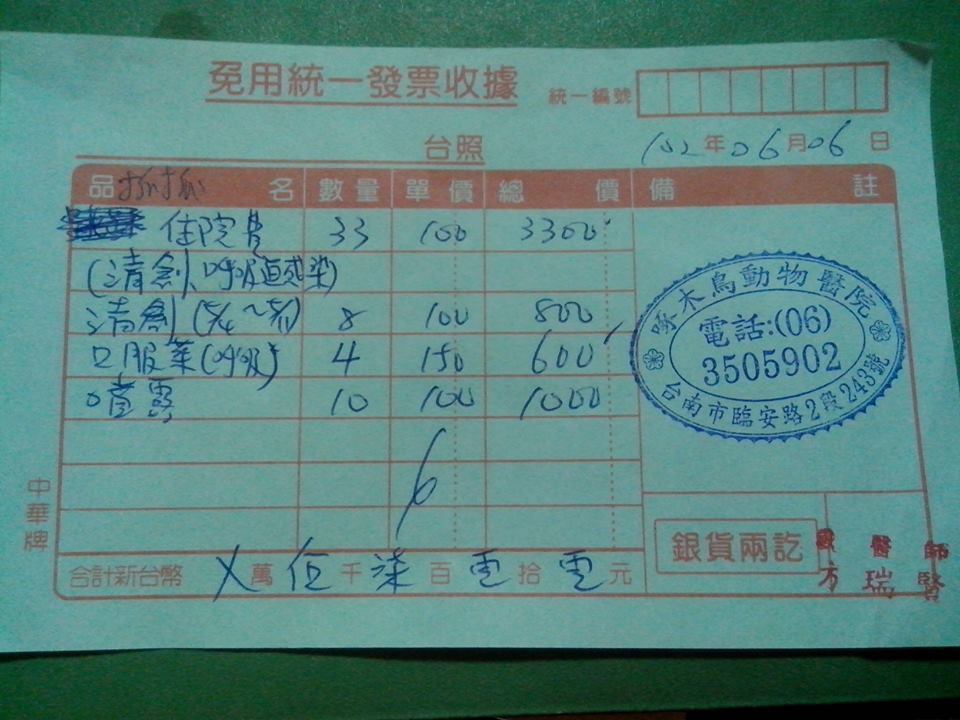 免用統一發票收據
統一編號
台照
102年06月06日
品名 數量 單價 總價 備註
抓抓
住院費 33 100 3300
(清創、呼吸道感染)
清創 8 100 800
口服藥(呼吸) 4 150 600
噴霧 10 100 1000
啄木鳥動物醫院
電話:(06)
3505902
台南市臨安路2段243號
中華牌
銀貨兩訖
獸醫師
方瑞賢
合計新台幣 X萬伍千柒百零拾零元